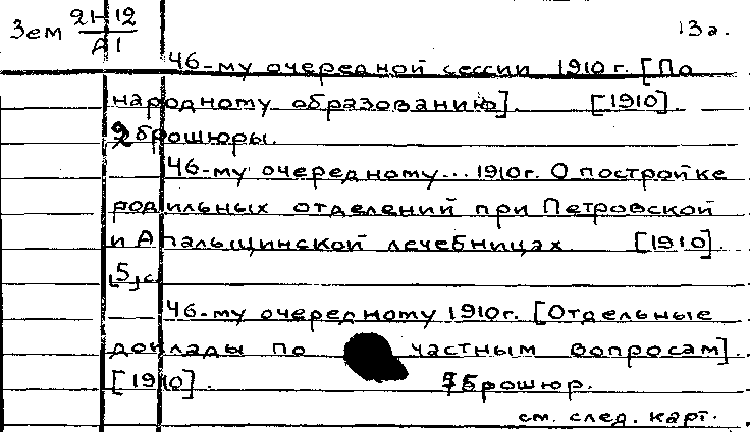 Зем 21-12 13г.
А1
46-му очередной сессии 1910 г. [По
народному образованию]. [1910].
2 брошюры.
46-му очередному... 1910г. О постройке
родильных отделений при Петровской
и Апальщинской лечебницах [1910].
[5] с
46-му очередному 1910г. [Отдельные
доклады по частным вопросам]
[1910]. 7 брошюр.
см. след. карт.